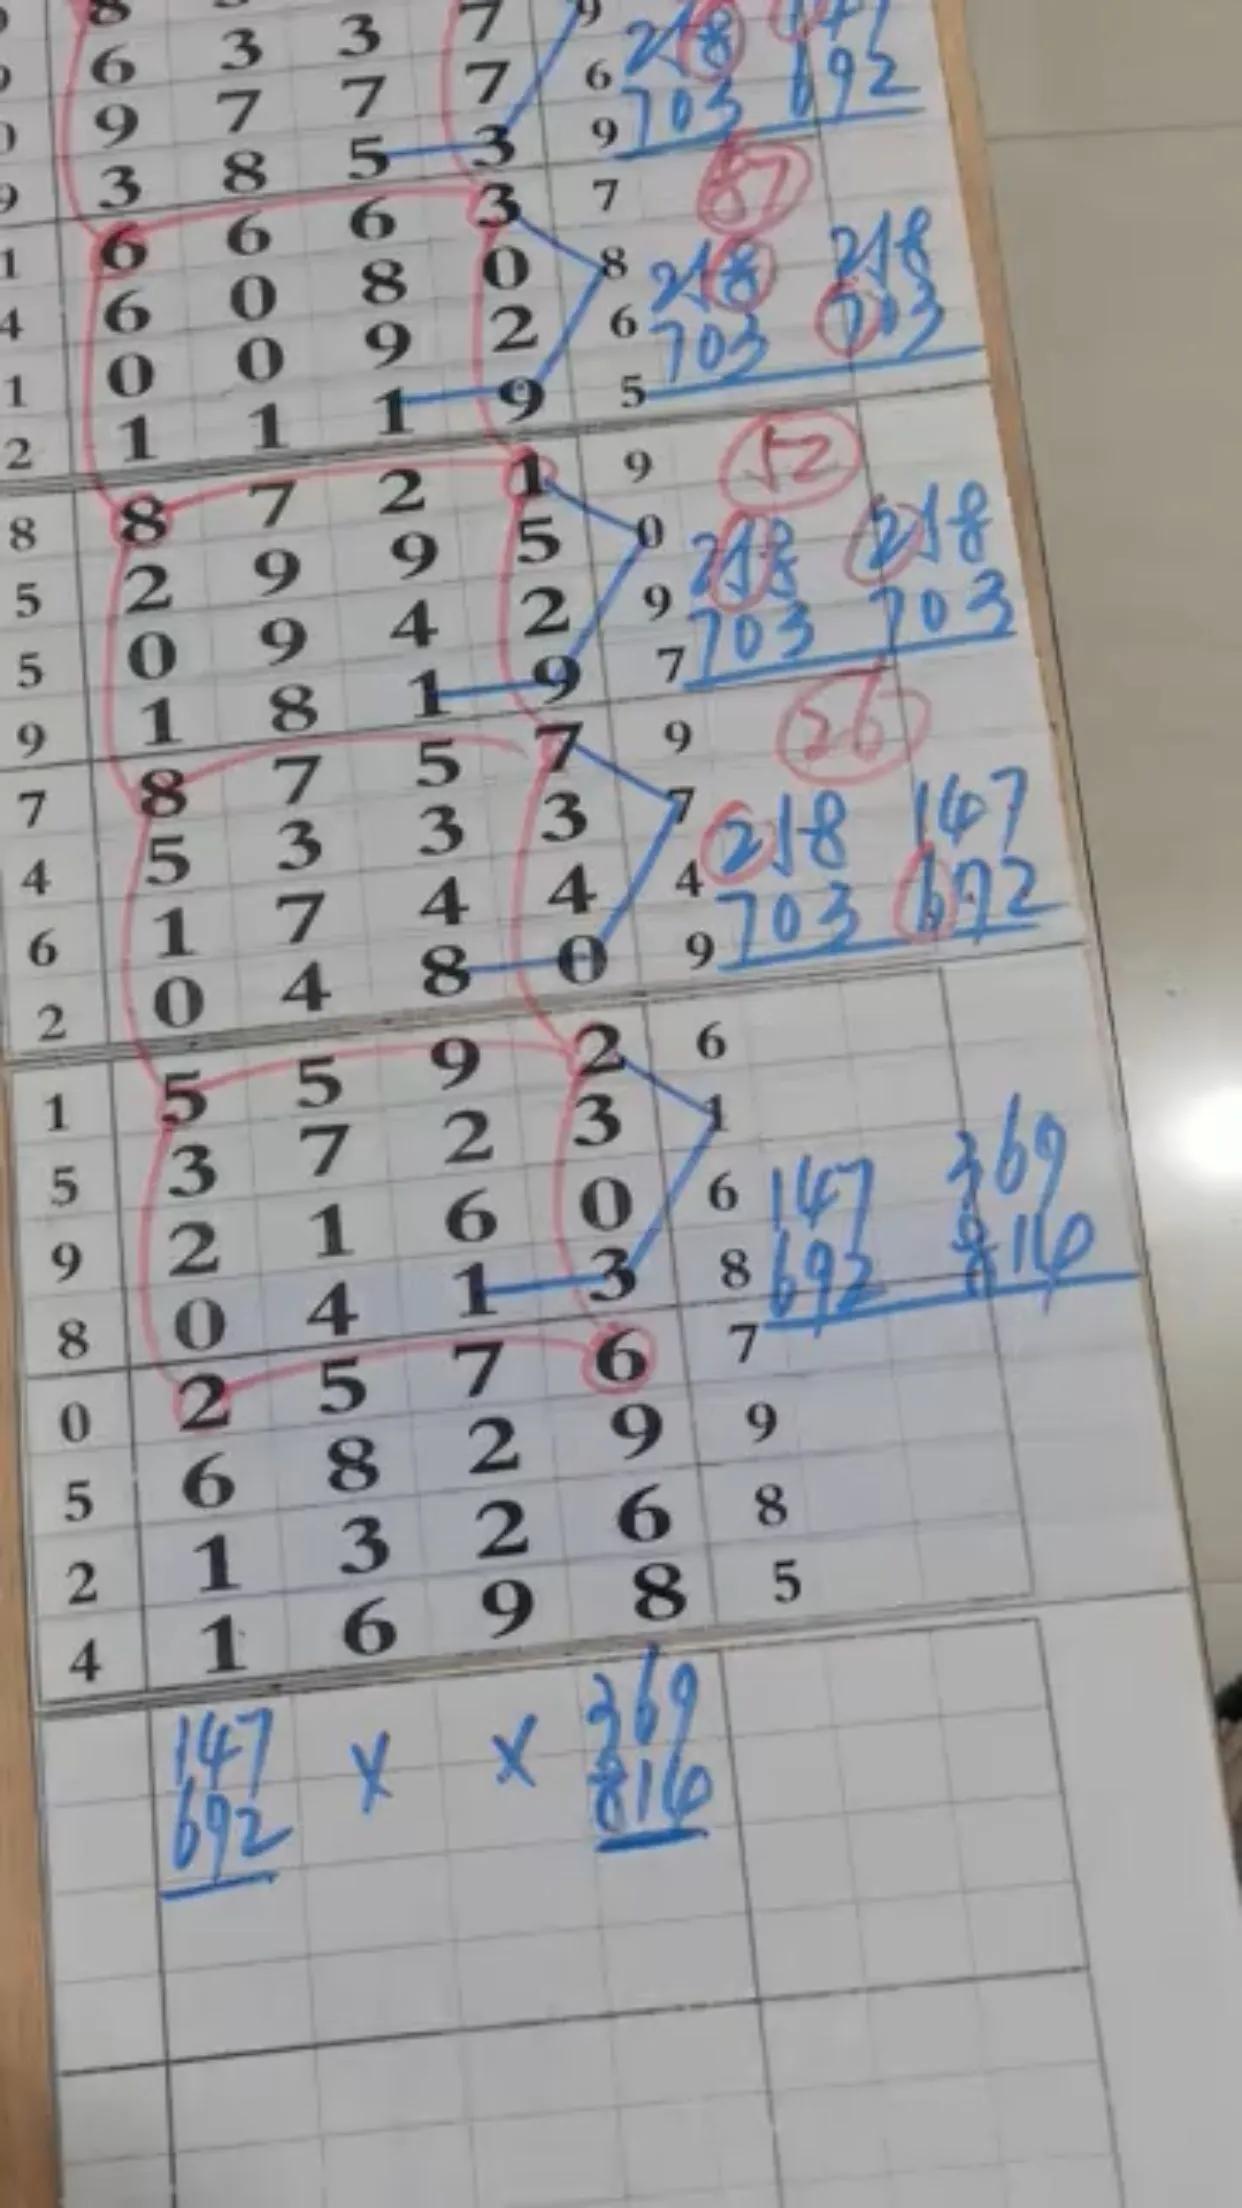 6 3 3 7 9 218 147
9 7 7 7 6 703 692
9 3 8 5 3 9
1 6 6 6 3 7 87
4 6 0 8 0 8 258 258
1 0 0 9 2 6 703 703
2 1 1 1 9 5
8 8 7 2 1 9 52
5 2 9 9 5 0 258 258
5 0 9 4 2 9 703 703
9 1 8 1 9 7
7 8 7 5 7 9 26
4 5 3 3 3 7 258 147
6 1 7 4 4 4 703 692
2 0 4 8 0 9
1 5 5 9 2 6
5 3 7 2 3 1
9 2 1 6 0 6 147 369
8 0 4 1 3 8 692 814
0 2 5 7 6 7
5 6 8 2 9 9
2 1 3 2 6 8
4 1 6 9 8 5
147 x x 369
692 814